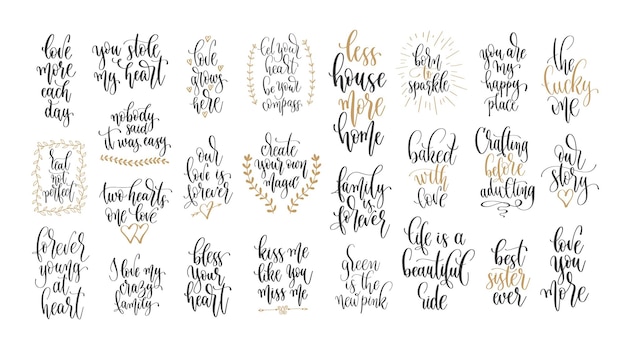 love
more
each
day
you stole
my heart
love
grows
here
let your
heart
be your
compass
less
house
more
home
born
to
sparkle
you are
my
happy
place
the
lucky
one
real
not
perfect
nobody
said
it was easy
our
love is
forever
create
your own
magic
family
is
forever
baked
with
love
Crafting
before
adulting
our
story
two hearts
one love
forever
young
at
heart
I love my
crazy
family
bless
your
heart
kiss me
like you
miss me
green
is the
new pink
life is a
beautiful
ride
best
sister
ever
love
you
more